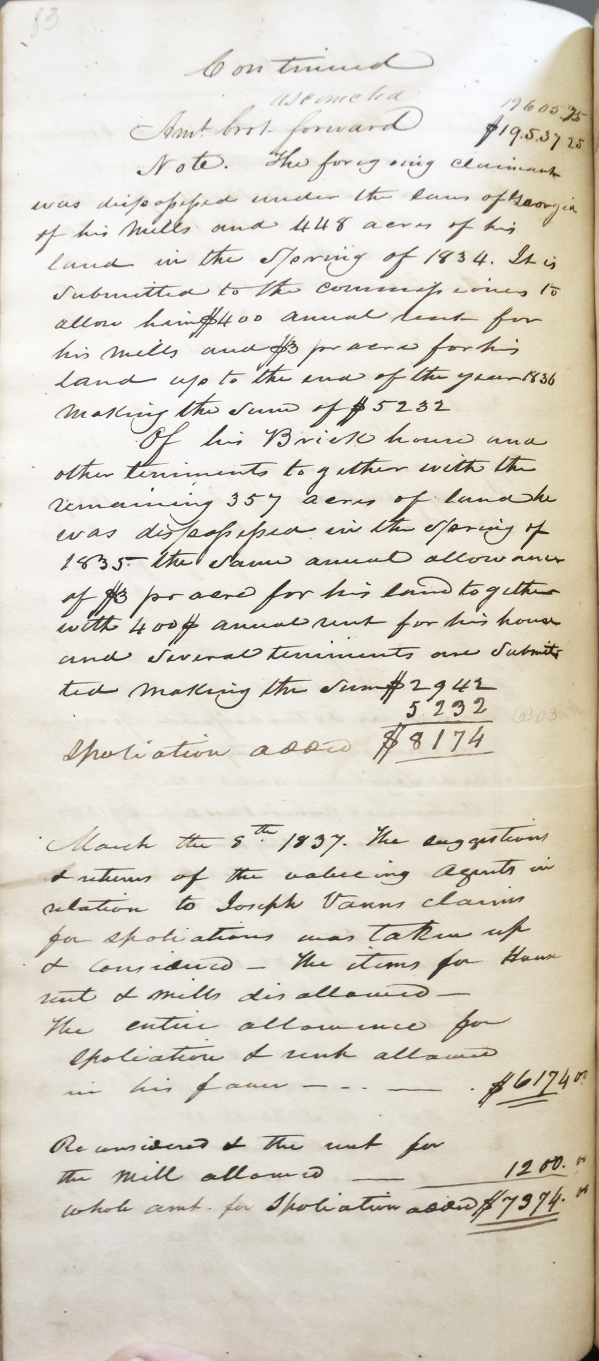 83
Continued
as corrected 19605.25
Amt. brot. forward $19.537 25
Note. The foregoing claimant
was dispossessed under the laws of Georgia
of his Mills and 448 acres of his
land in the Spring of 1834. It is
submitted to the commissioners to
allow him $400 anual rent for
his mills and $3 pr acre for his
land up to the end of the year 1836
making the sum of $5232
Of his Brick house and
other teniments together with the
remaining 357 acres of land he
was dispossessed in the Spring of
1835 the same anual allowance
of $3 pr acre for his land together
with 400$ anual rent for his house
and several teniments are submit-
ted making the sum $2942
5 232
Spoliation added $8174
March the 8th 1837. The suggestions
& returns of the valueing Agents in
relation to Joseph Vanns claims
for spoliations was taken up
& considered — The items for House
rent & mills disallowed —
The entire allowance for
Spoliation & rent allowed
in his favor - - . — . $6174 00
Reconsidered & the rent for
the Mill allowed — 1200. 00
whole amt. for Spoliation added $7374. 00